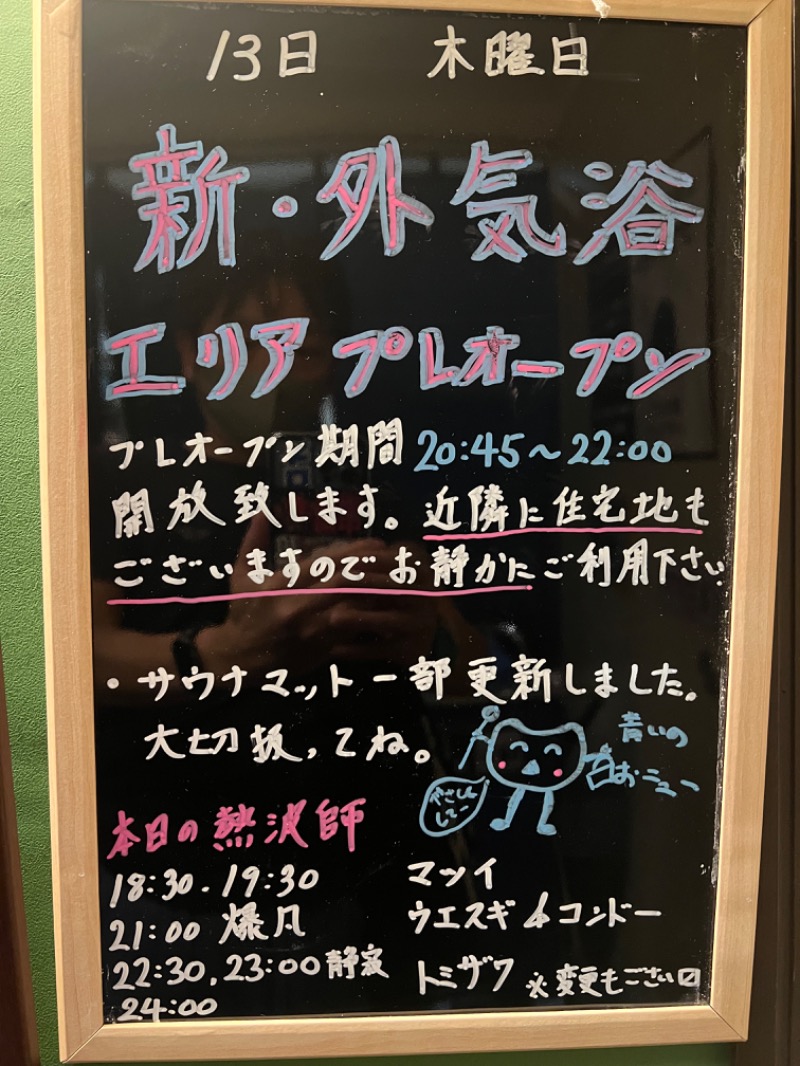 13日 木曜日
新・外気浴
エリア プレオープン
プレオープン期間 20:45〜22:00
開放致します。近隣に住宅地も
ございますのでお静かにご利用下さい
・サウナマット一部更新しました。
大切扱ってね。
青いの
おニュー
やさしく
してー
本日の熱波師
18:30.19:30 マツイ
21:00 爆風 ウエスギ&コンドー
22:30,23:00静寂 トミザワ
24:00
※変更もござい〼